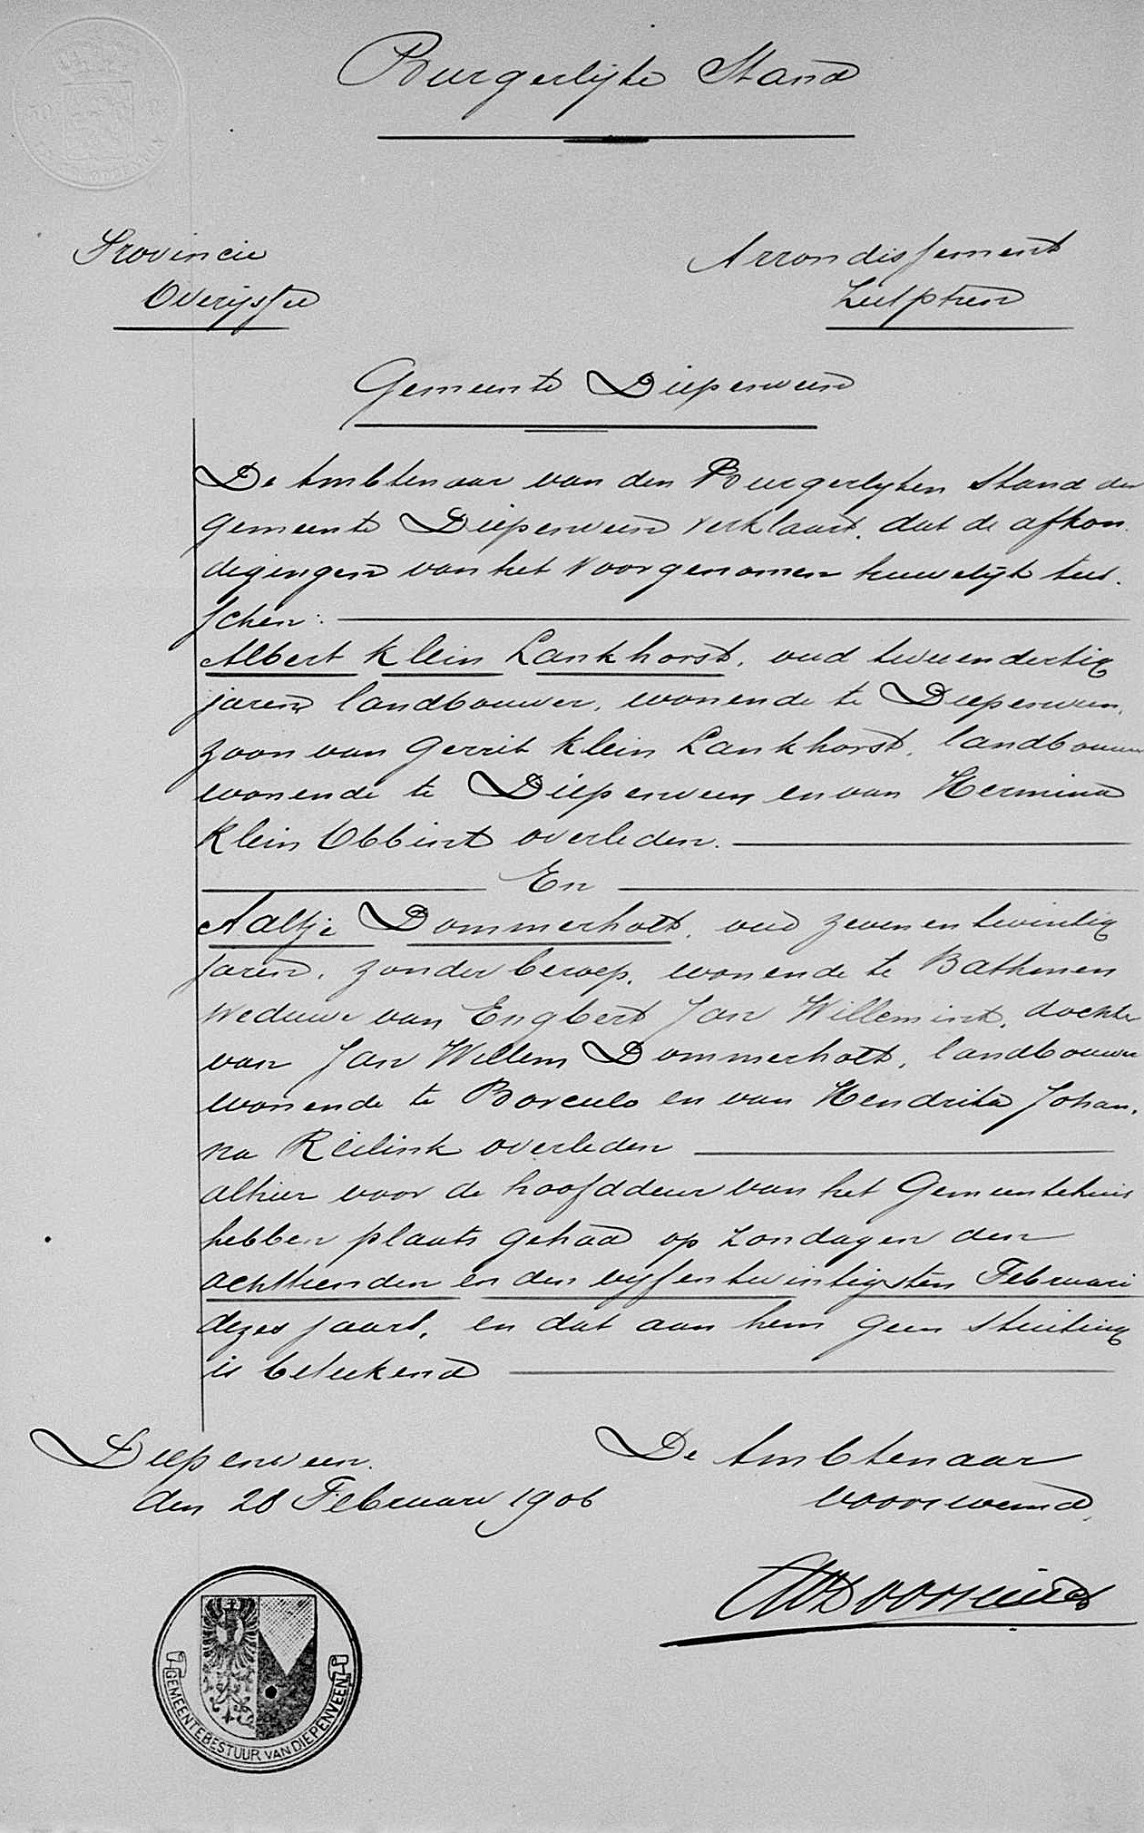 Burgerlijke Stand
Provincie
Overijssel
Arrondissement
Zutphen
Gemeente Diepenveen
De Ambtenaar van den Burgerlyken Stand der
gemeente Diepenveen verklaart, dat de afkon-
digingen van het voorgenomen huwelijk tus-
schen:
Albert Klein Lankhorst, oud tweeendertig
jaren, landbouwer, wonende te Diepenveen,
zoon van Gerrit Klein Lankhorst, landbouwer
wonende te Diepenveen en van Hermina
Klein Obbink overleden.
En
Aaltje Dommerholt, oud zevenentwintig
jaren, zonder beroep, wonende te Bathmen
weduwe van Engbert Jan Willemink, dochter
van Jan Willem Dommerholt, landbouwer
wonende te Borculo en van Hendrika Johan-
na Reilink overleden
alhier voor de hoofddeur van het Gemeentehuis
hebben plaats gehad op Zondagen den
achttienden en den vyfentwintigsten Februari
dezes jaars, en dat aan hem geen stuiting
is beteekend
Diepenveen.
den 28 Februari 1906
De Ambtenaar
voornoemd,
GEMEENTEBESTUUR VAN DIEPENVEEN